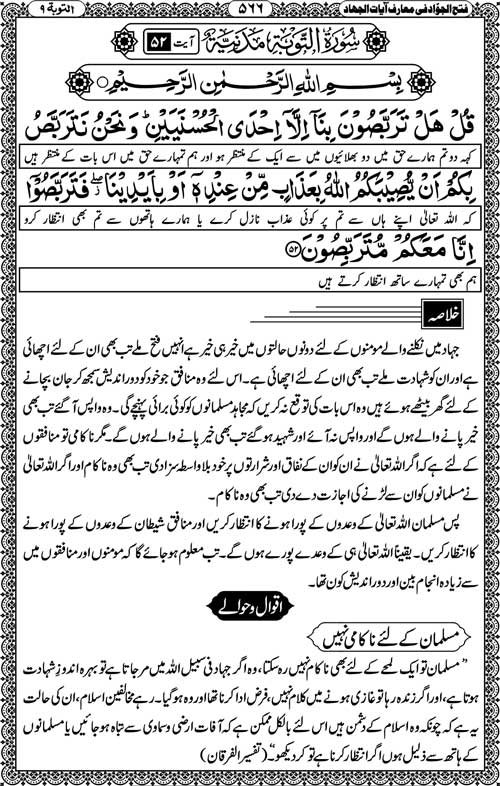 فتح الجوّاد فی معارف آیات الجہاد ۵۶۶ التوبۃ ۹
سُوْرَةُ التَّوْبَةِ مَدَنِيَّةٌ آیت ۵۲
بِسْمِ اللهِ الرَّحْمٰنِ الرَّحِيْمِ
قُلْ هَلْ تَرَبَّصُوْنَ بِنَآ اِلَّآ اِحْدَى الْحُسْنَيَيْنِ ؕ وَ نَحْنُ نَتَرَبَّصُ
کہہ دو تم ہمارے حق میں دو بھلائیوں میں سے ایک کے منتظر ہو اور ہم تمہارے حق میں اس بات کے منتظر ہیں
بِكُمْ اَنْ يُّصِيْبَكُمُ اللهُ بِعَذَابٍ مِّنْ عِنْدِهٖٓ اَوْ بِاَيْدِيْنَا ۖ فَتَرَبَّصُوْٓا
کہ اللہ تعالیٰ اپنے ہاں سے تم پر کوئی عذاب نازل کرے یا ہمارے ہاتھوں سے تم بھی انتظار کرو
اِنَّا مَعَكُمْ مُّتَرَبِّصُوْنَ ۵۲
ہم بھی تمہارے ساتھ انتظار کرتے ہیں
خلاصہ
جہاد میں نکلنے والے مومنوں کے لئے دونوں حالتوں میں خیر ہی خیر ہے انہیں فتح ملے تب بھی ان کے لئے اچھائی
ہے اور ان کو شہادت ملے تب بھی ان کے لئے اچھائی ہے۔ اس لئے وہ منافق جو خود کو دور اندیش سمجھ کر جان بچانے
کے لئے گھر بیٹھے ہوئے ہیں وہ اس بات کی توقع نہ کریں کہ مجاہد مسلمانوں کو کوئی برائی پہنچے گی۔ وہ واپس آ گئے تب بھی
خیر پانے والے ہوں گے اور واپس نہ آئے اور شہید ہو گئے تب بھی خیر پانے والے ہوں گے۔ مگر ناکامی تو منافقوں
کے لئے ہے کہ اگر اللہ تعالیٰ نے ان کو ان کے نفاق اور شرارتوں پر خود بلاواسطہ سزا دی تب بھی وہ ناکام اور اگر اللہ تعالیٰ
نے مسلمانوں کو ان سے لڑنے کی اجازت دے دی تب بھی وہ ناکام۔
پس مسلمان اللہ تعالیٰ کے وعدوں کے پورا ہونے کا انتظار کریں اور منافق شیطان کے وعدوں کے پورا ہونے
کا انتظار کریں۔ یقیناً اللہ تعالیٰ ہی کے وعدے پورے ہوں گے۔ تب معلوم ہو جائے گا کہ مومنوں اور منافقوں میں
سے زیادہ انجام بین اور دور اندیش کون تھا۔
اقوال و حوالے
مسلمان کے لئے ناکامی نہیں
”مسلمان تو ایک لمحے کے لئے بھی ناکام نہیں رہ سکتا، وہ اگر جہاد فی سبیل اللہ میں مر جاتا ہے تو بہرہ اندوزِ شہادت
ہوتا ہے، اور اگر زندہ رہا تو غازی ہونے میں کلام نہیں، فرض ادا کرنا تھا اور وہ ہو گیا۔ رہے مخالفین اسلام، ان کی حالت
یہ ہے کہ چونکہ وہ اسلام کے دشمن ہیں اس لئے بالکل ممکن ہے کہ آفات ارضی و سماوی سے تباہ ہو جائیں یا مسلمانوں
کے ہاتھ سے ذلیل ہوں اگر انتظار کرنا ہے تو کر دیکھو“ (تفسیر الفرقان)